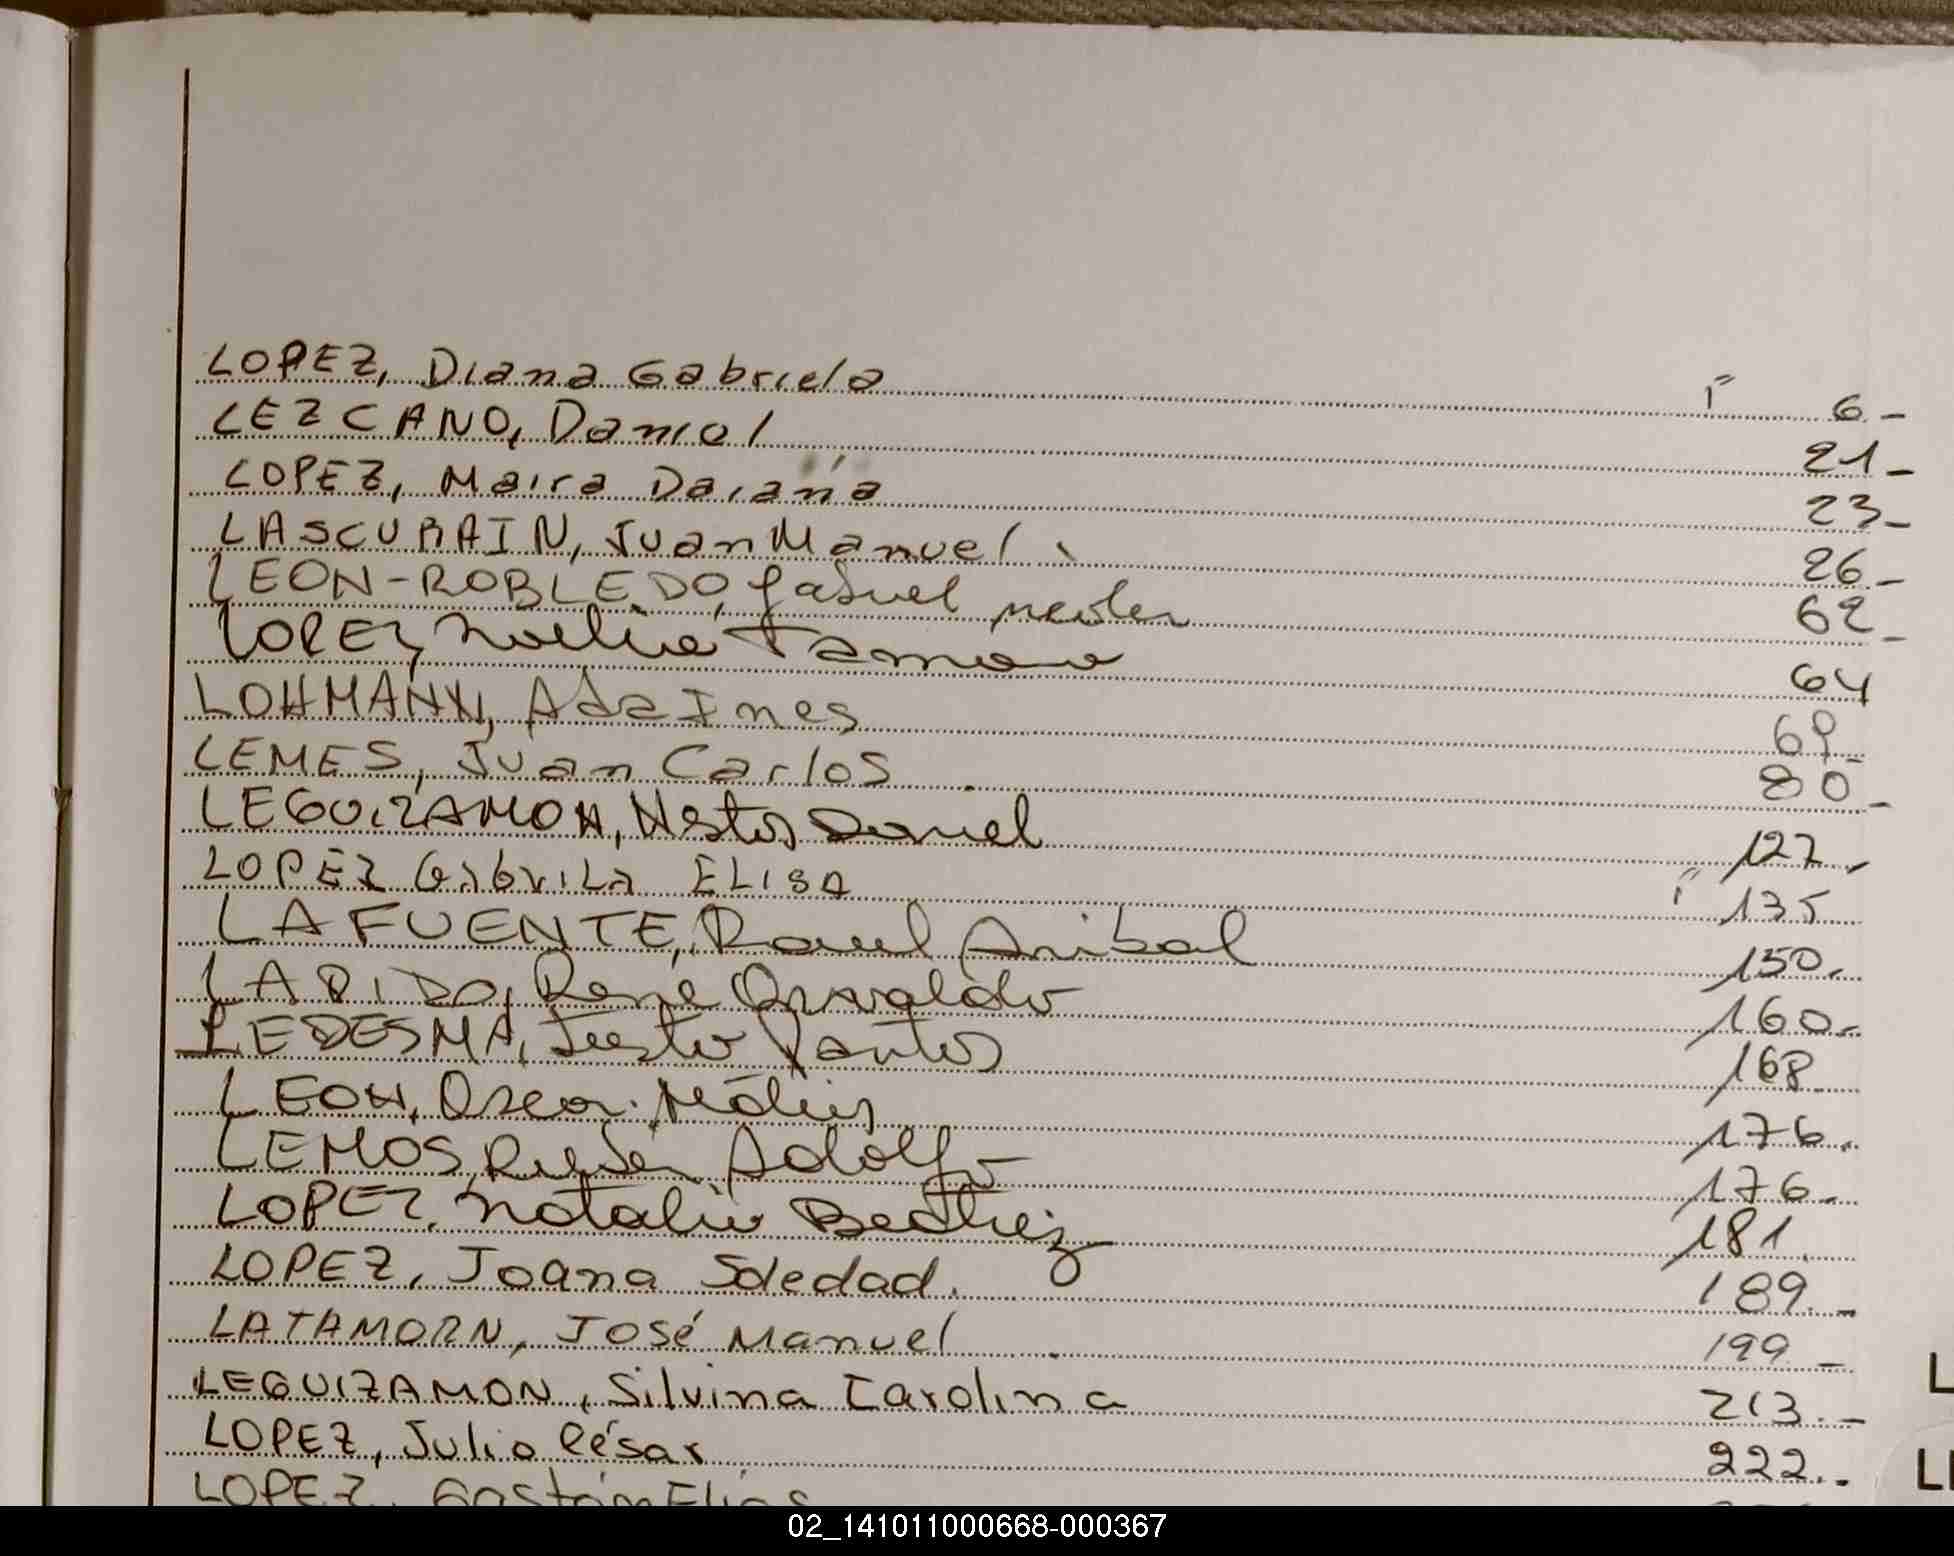 LOPEZ, Diana Gabriela 6.-
LEZCANO, Daniel 21-
LOPEZ, Maira Daiana 23-
LASCURAIN, Juan Manuel 26.-
LEON-ROBLEDO, 62-
LOPEZ, Noelia Tamara 64
LOHMANN, Ada Ines 69.-
LEMES, Juan Carlos 80.-
LEGUIZAMON, Nestor Daniel 127.-
LOPEZ Gabrila ELISA 135
LAFUENTE, Raul Anibal 150.-
René Osvaldo 160.-
LEDESMA, Justo Santos 168
LEON, Oscar 176.-
LEMOS, Rubén Adolfo 176.-
LOPEZ, Natalia Beatriz 181.
LOPEZ, Joana Soledad. 189.-
LATAMORN, José Manuel 199.-
LEGUIZAMON, Silvina Carolina 213.-
LOPEZ, Julio César 222.-
LOPEZ, Gastón Elias
L
LE
02_141011000668-000367